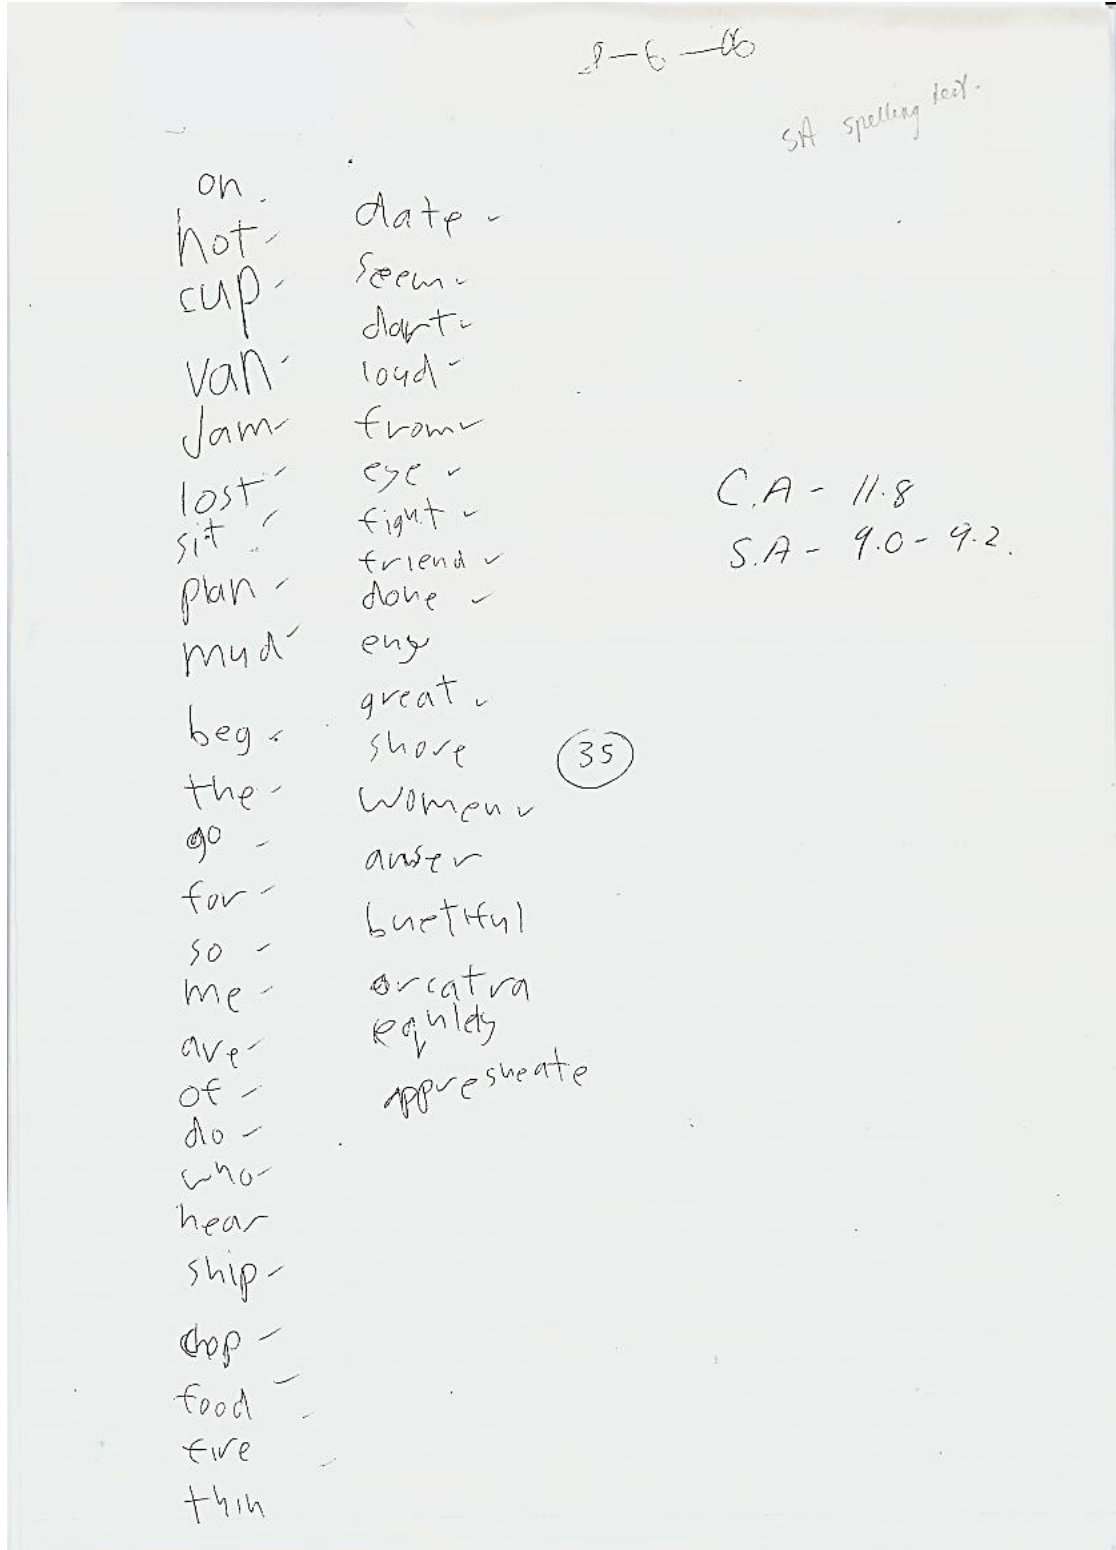 8-6-06
SA spelling test.
on.
hot
cup
van
Jam
lost
sit
plan
mud
beg
the
go
for
so
me
are
of
do
who
hear
ship
chop
food
fire
thin
date
seem
dart
loud
from
eye
fight
friend
done
eny
great
shore
women
anser
buetiful
orcatra
appresheate
35
C.A - 11.8
S.A - 9.0 - 9.2.